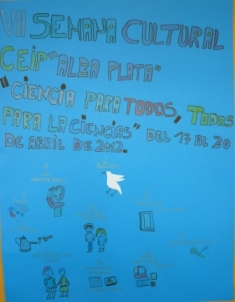 VII SEMANA CULTURAL
CEIP "ALBA PLATA"
"CIENCIA PARA TODOS, TODOS
PARA LA CIENCIAS" DEL 17 AL 20
DE ABRIL DE 2012.